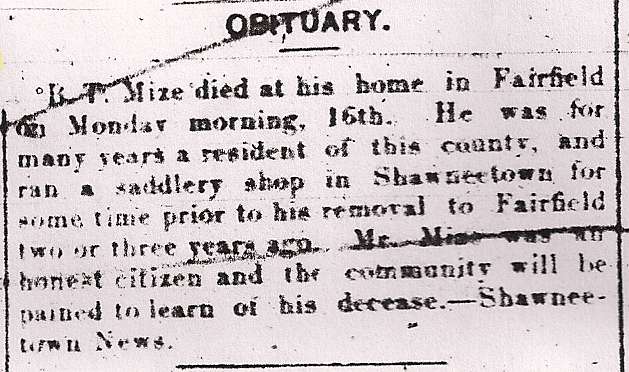 OBITUARY.
B. T. Mize died at his home in Fairfield
on Monday morning, 16th. He was for
many years a resident of this county, and
ran a saddlery shop in Shawneetown for
some time prior to his removal to Fairfield
two or three years ago. Mr. Mize was an
honest citizen and the community will be
pained to learn of his decease.—Shawnee-
town News.